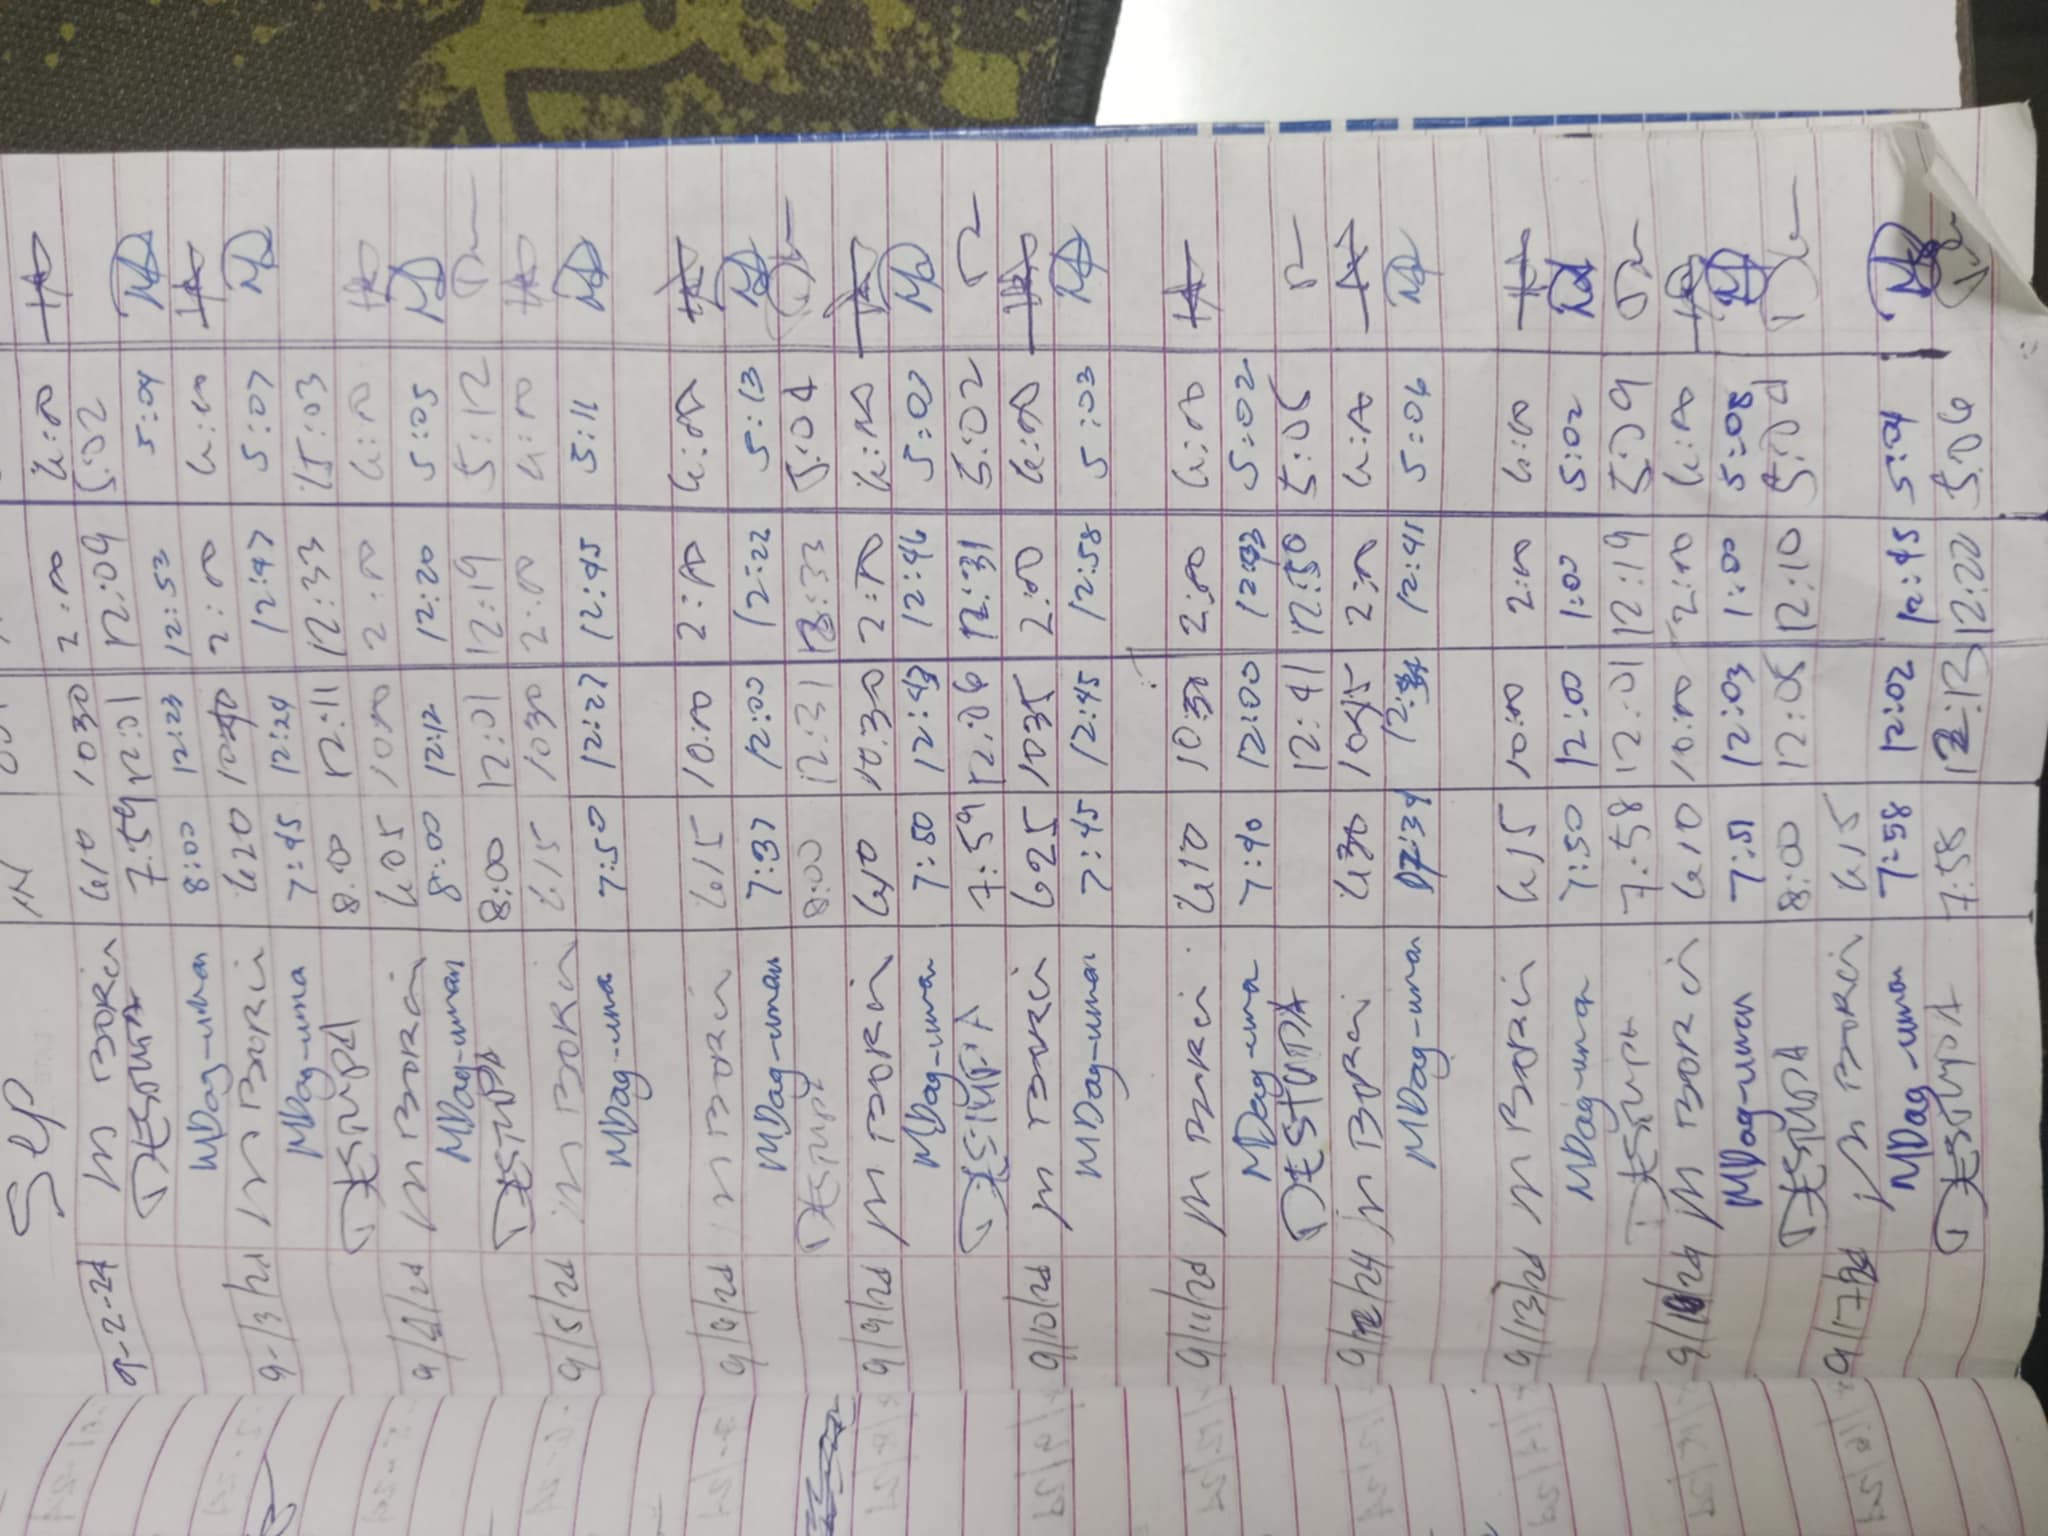 Sep IN
9-2-24 m Borci 610 1030 2:00 4:00
DESTUPA 7:59 12:01 12:09 5:02
MDag-uman 8:00 12:23 12:53 5:04
9-/3/24 m Borci 620 2:00 4:00
MDag-uma 7:45 12:24 12:47 5:07
DESTUPA 8:00 12:11 12:33 5:03
9/4/24 m Borci 605 10:00 2:00 4:00
MDag-uman 8:00 12:12 12:20 5:05
DESTUPA 8:00 12:01 12:19 5:12
9/5/24 m Borci 615 1030 2:00 4:00
MDag-uma 7:50 12:27 12:45 5:11
9/6/24 m Borci 615 10:00 2:00 4:00
MDag-uman 7:37 12:00 12:22 5:13
DESTUPA 8:00 12:31 12:33 5:04
9/9/24 m Borci 610 10:30 2:00 4:00
MDag-uman 7:50 12:43 12:46 5:07
DESTUPA 7:59 12:06 12:31 5:02
9/10/24 m Borci 625 1035 2:00 4:00
MDag-uman 7:45 12:45 12:58 5:03
9/11/24 m Borci 610 10:30 2:00 4:00
MDag-uma 7:40 12:00 5:02
DESTUPA 12:41 12:50 5:05
9/12/24 m Borci 630 1045 2:00 4:00
MDag-uman 12:41 5:06
9/13/24 m Borci 615 10:00 2:00 4:00
MDag-uman 7:50 12:00 1:00 5:02
DESTUPA 7:58 12:01 12:19 5:09
m Borci 610 10:00 2:00 4:00
MDag-uman 7:51 12:03 1:00 5:08
DESTUPA 8:00 12:05 12:10 5:04
9/17/24 m Borci 615
MDag-uman 7:58 12:02 12:45 5:04
DESTUPA 7:58 12:13 12:20 5:06